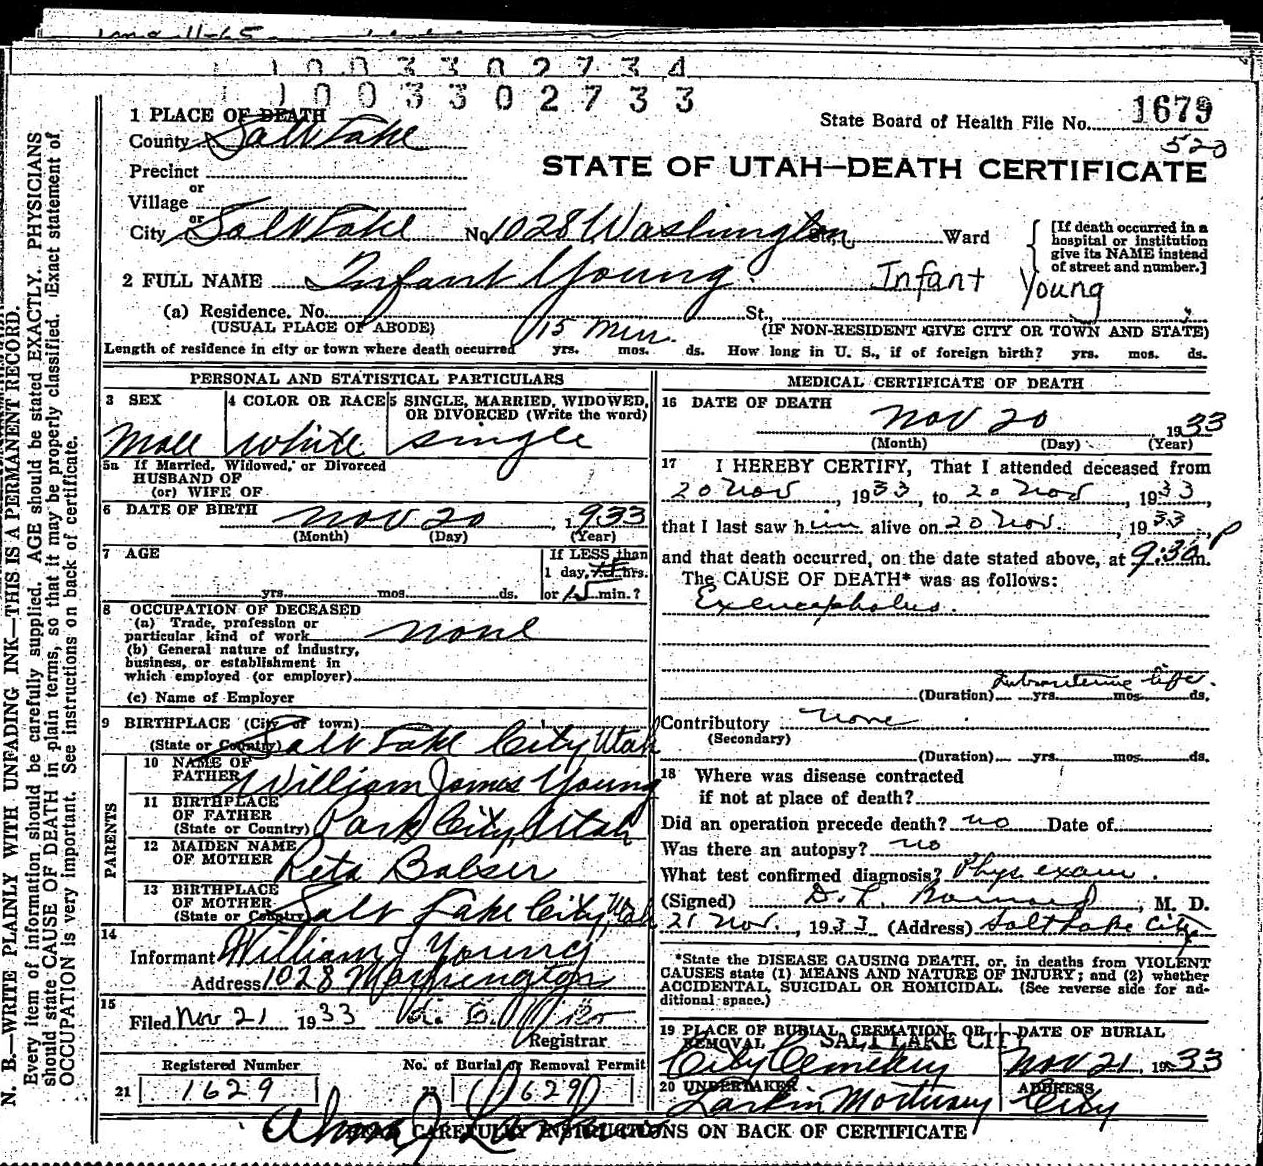 1003302734
1003302733
State Board of Health File No. 1679
520
STATE OF UTAH—DEATH CERTIFICATE
1 PLACE OF DEATH
County Salt Lake
Precinct
or
Village
or
City Salt Lake No. 1028 Washington St., Ward
[If death occurred in a hospital or institution give its NAME instead of street and number.]
2 FULL NAME Infant Young. Infant Young
(a) Residence. No. St.,
(USUAL PLACE OF ABODE) (IF NON-RESIDENT GIVE CITY OR TOWN AND STATE)
15 min.
Length of residence in city or town where death occurred yrs. mos. ds. How long in U. S., if of foreign birth? yrs. mos. ds.
PERSONAL AND STATISTICAL PARTICULARS
3 SEX Male
4 COLOR OR RACE white
5 SINGLE, MARRIED, WIDOWED, OR DIVORCED (Write the word) single
5a If Married, Widowed, or Divorced
HUSBAND OF
(or) WIFE OF
6 DATE OF BIRTH Nov 20, 1933
(Month) (Day) (Year)
7 AGE
yrs. mos. ds.
If LESS than
1 day, hrs.
or 15 min.?
8 OCCUPATION OF DECEASED
(a) Trade, profession or
particular kind of work none
(b) General nature of industry,
business, or establishment in
which employed (or employer)
(c) Name of Employer
9 BIRTHPLACE (City or town)
(State or Country) Salt Lake City, Utah
PARENTS
10 NAME OF FATHER William James Young
11 BIRTHPLACE OF FATHER
(State or Country) Park City, Utah
12 MAIDEN NAME OF MOTHER Reta
13 BIRTHPLACE OF MOTHER
(State or Country) Salt Lake City, Utah
14
Informant William J Young
Address 1028 Washington
15
Filed Nov 21 1933
Registrar
Registered Number No. of Burial or Removal Permit
21 1629 22 1629
MEDICAL CERTIFICATE OF DEATH
16 DATE OF DEATH
Nov 20 1933
(Month) (Day) (Year)
17 I HEREBY CERTIFY, That I attended deceased from
20 Nov, 1933, to 20 Nov, 1933,
that I last saw him alive on 20 Nov., 1933,
and that death occurred, on the date stated above, at 9:30 P m.
The CAUSE OF DEATH* was as follows:
Exencephalus.
Intrauterine life.
(Duration) yrs. mos. ds.
Contributory none
(Secondary)
(Duration) yrs. mos. ds.
18 Where was disease contracted
if not at place of death?
Did an operation precede death? no Date of
Was there an autopsy? no
What test confirmed diagnosis? Phys exam.
(Signed) D. L. Barnard, M. D.
21 Nov., 1933 (Address) Salt Lake City
*State the DISEASE CAUSING DEATH, or, in deaths from VIOLENT
CAUSES state (1) MEANS AND NATURE OF INJURY; and (2) whether
ACCIDENTAL, SUICIDAL OR HOMICIDAL. (See reverse side for ad-
ditional space.)
19 PLACE OF BURIAL, CREMATION, OR REMOVAL SALT LAKE CITY
City Cemetery
DATE OF BURIAL
Nov 21 1933
20 UNDERTAKER
Larkin Mortuary
ADDRESS
City
READ CAREFULLY INSTRUCTIONS ON BACK OF CERTIFICATE
N. B.—WRITE PLAINLY WITH UNFADING INK—THIS IS A PERMANENT RECORD.
Every item of information should be carefully supplied. AGE should be stated EXACTLY. PHYSICIANS
should state CAUSE OF DEATH in plain terms, so that it may be properly classified. Exact statement of
OCCUPATION is very important. See instructions on back of certificate.